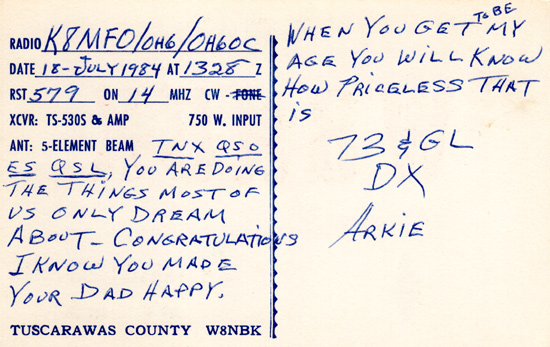 RADIO K8MFO/OH6/OH6OC
DATE 18-JULY 1984 AT 1328 Z
RST 579 ON 14 MHZ CW - FONE
XCVR: TS-530S & AMP 750 W. INPUT
ANT: 5-ELEMENT BEAM TNX QSO
ES QSL, YOU ARE DOING
THE THINGS MOST OF
US ONLY DREAM
ABOUT- CONGRATULATIONS
I KNOW YOU MADE
YOUR DAD HAPPY.
TUSCARAWAS COUNTY W8NBK
WHEN YOU GET TO BE MY
AGE YOU WILL KNOW
HOW PRICELESS THAT
is
73 & GL
DX
ARKIE